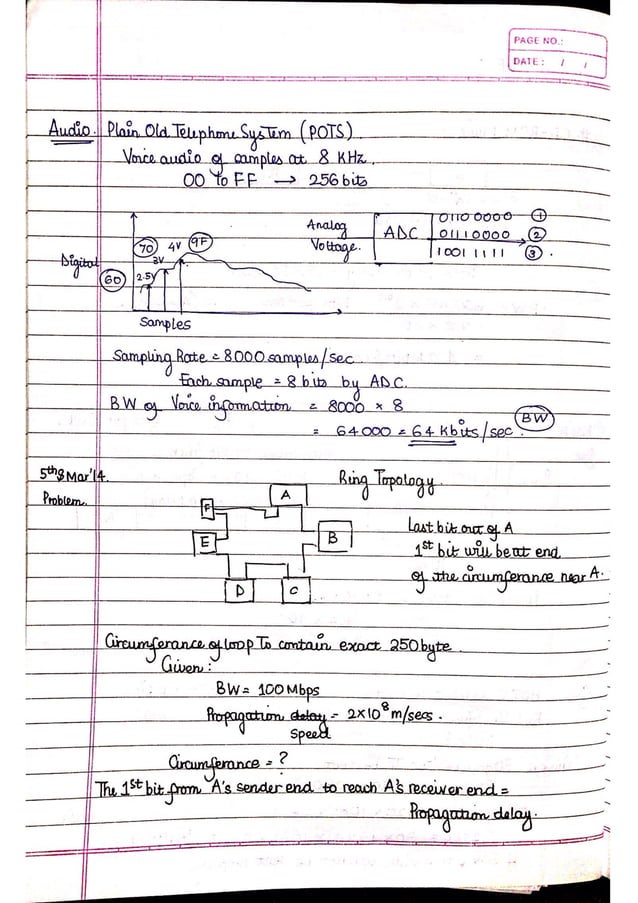 PAGE NO.:
DATE: / /
Audio. Plain Old Telephone System (POTS)
Voice audio of samples at 8 KHz.
00 To FF → 256 bits
Analog
Voltage.
ADC
0110 0000 ①
01110000 ②
1001 1111 ③.
Digital
60
70
9F
2.5V
3V
4V
Samples
Sampling Rate = 8000 samples/sec
Each sample = 8 bits by ADC.
BW of Voice information = 8000 × 8
= 64000 = 64 Kbits/sec. BW
5th8 Mar'14.
Problem.
Ring Topology.
A
B
C
D
E
F
Last bit out of A
1st bit will be at end
of the circumferance near A.
Circumferance of loop To contain exact 250 byte.
Given:
BW = 100 Mbps
Propagation delay = 2×10⁸ m/secs.
Speed
Circumferance = ?
The 1st bit from A's sender end to reach A's receiver end =
Propagation delay.